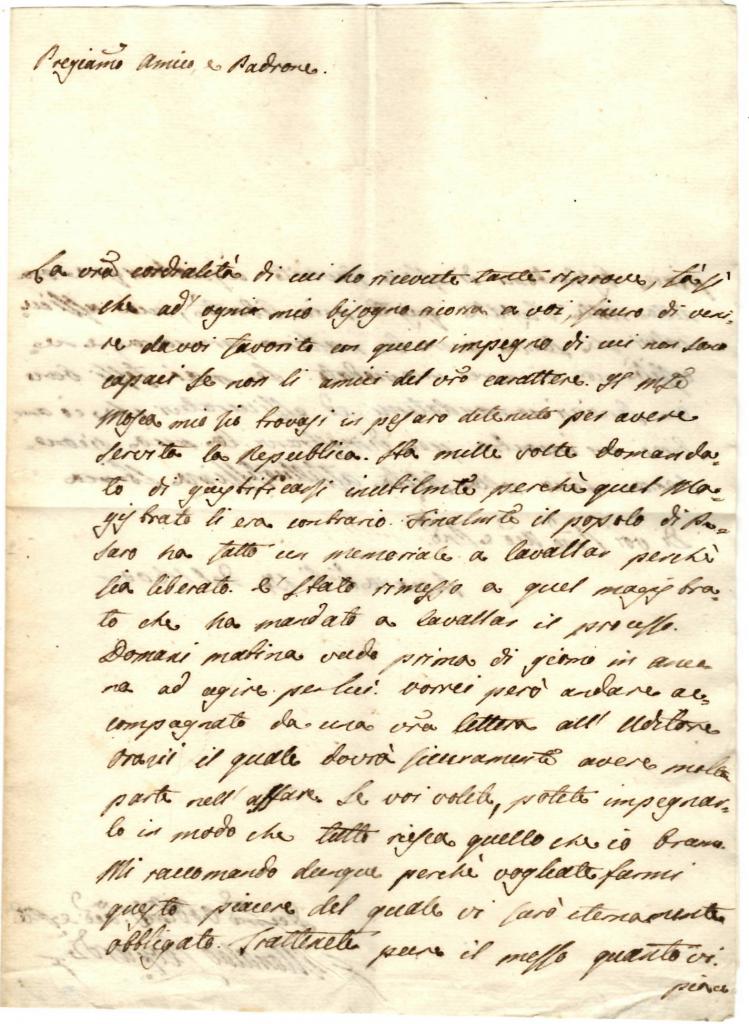 Pregiamo Amico, e Padrone.
La vra cordialità di cui ho ricevute tante riprove, fà sì
che ad' ogni mio bisogno ricorra a voi, sicuro di veni=
re da voi favorito con quell' impegno di cui non sono
capaci se non li amici del vro carattere. Il
Mosca mio zio trovasi in Pesaro detenuto per avere
servita la Republica. Ha mille volte domanda=
to di giustificarsi inutilmte perchè quel Ma=
gistrato li era contrario. Finalmte il popolo di Pe=
saro ha fatto un memoriale a Lavallar perchè
sia liberato. E' stato rimesso a quel magistra=
to che ha mandato a Lavallar il processo.
Domani matina vado prima di giorno in Anco=
na ad agire per lui. Vorrei però andare ac=
compagnato da una vra lettera all' Uditore
il quale dovrà sicuramente avere molta
parte nell' affare. Se voi volete, potete impegnar=
lo in modo che tutto riesca quello che io bramo.
Mi raccomando dunque perchè vogliate farmi
questo piacere del quale vi sarò eternamente
obbligato. Trattenete pure il messo quanto vi
piace